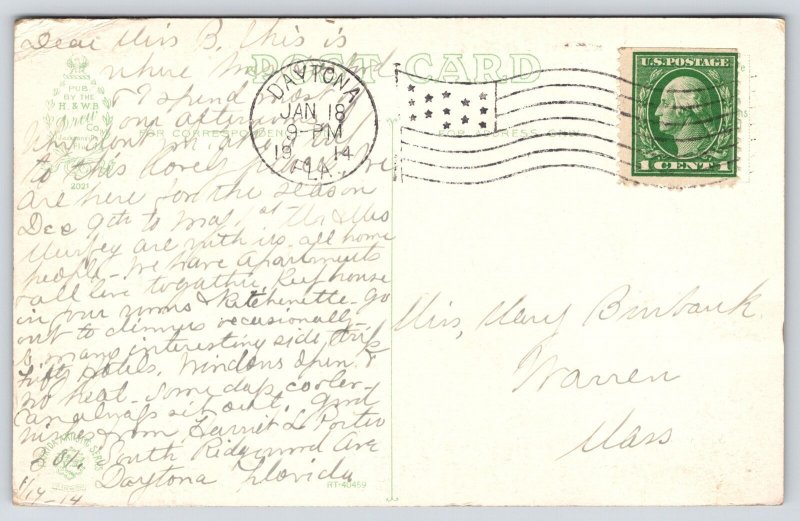 POST CARD
PUB.
BY THE
H. & W.B.
DREW
Co.
FOR CORRESPONDENCE
FOR ADDRESS ONLY
2021
Dear Miss B. This is
where
& I spend most
one afternoon
Why dont you
to this lovely place We
are here for the season
Dec 9th to May 1st Mr & Mrs
are with us. all home
people - We have apartments
& all live togather, Keep house
in our rooms & Kitchenette - Go
out to dinners occasionally
So many interesting side trips
Fine hotels. Windows open &
no heat - Some days cooler -
can always sit out. Good
from Harriet L Porter
South Ridgewood Ave
Daytona Florida
1/17-14
RT-40459
DAYTONA
JAN 18
9-PM
1914
FLA.
U.S. POSTAGE
1 CENT 1
Miss, Mary Burbank
Warren
Mass